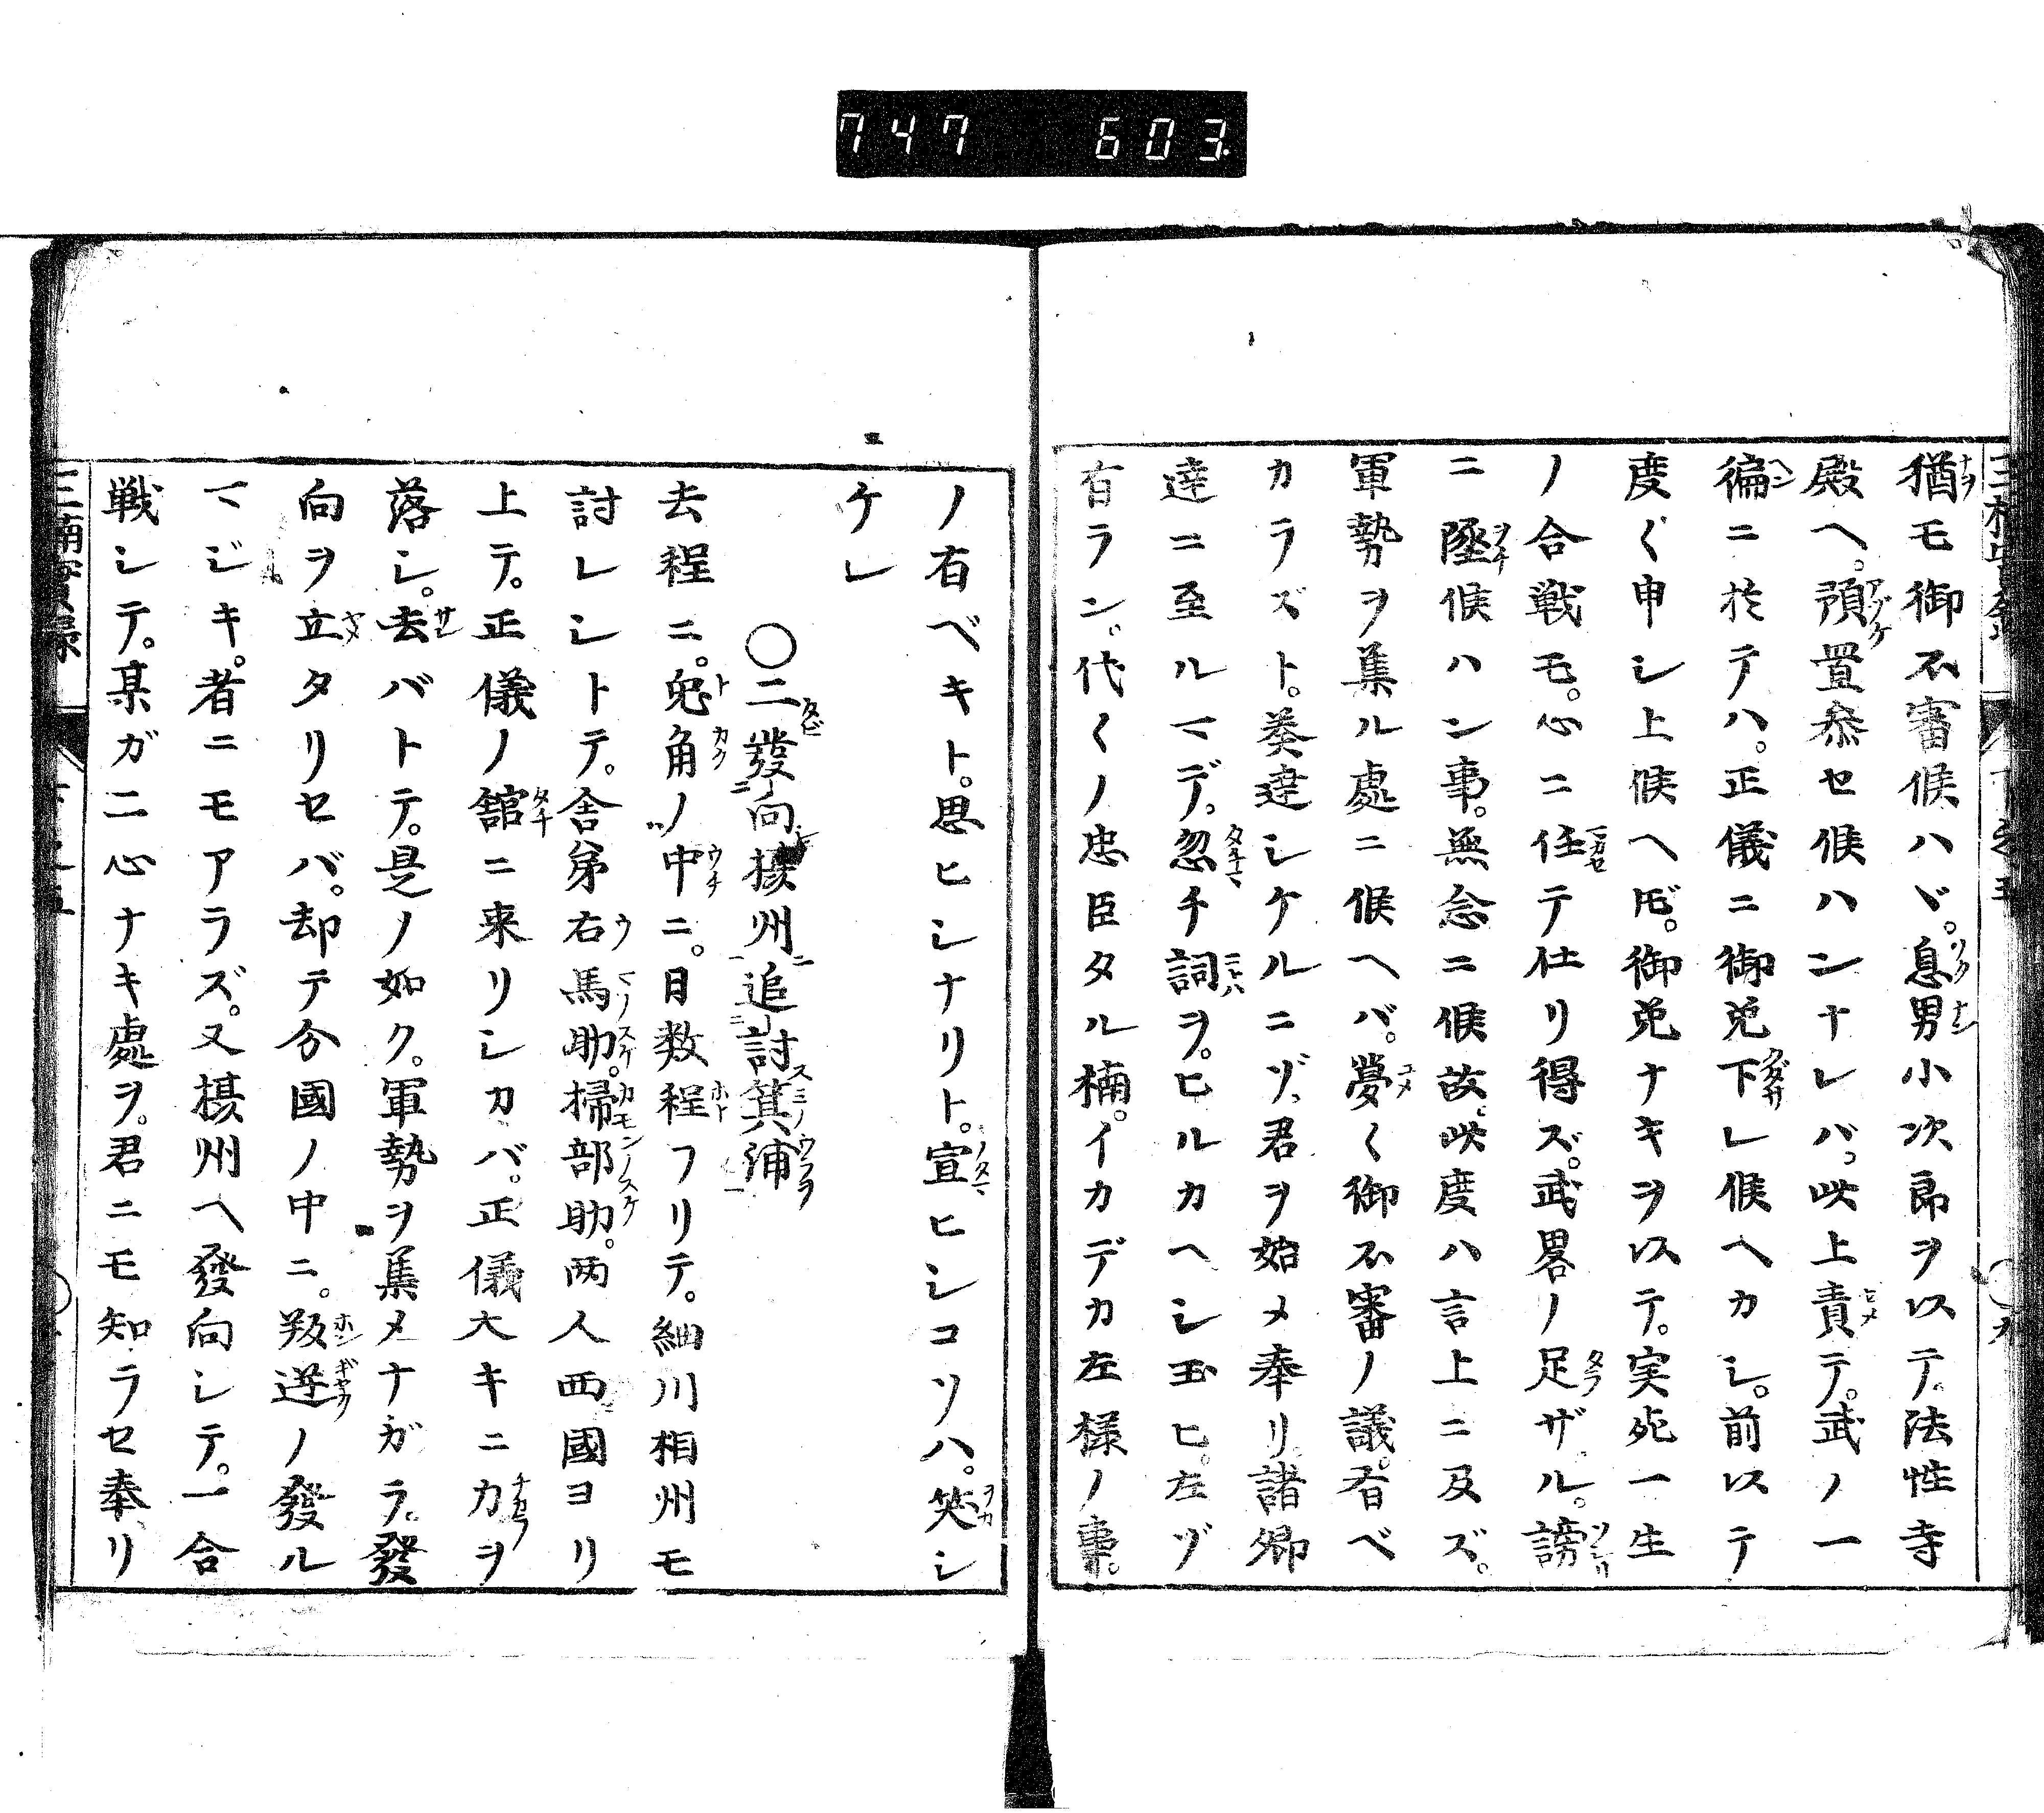 747 603
猶モ御不審候ハヾ。息男小次郎ヲ以テ。法性寺
殿ヘ。預置参セ候ハンナレバ。此上責テ。武ノ一
徧ニ於テハ。正儀ニ御免下レ候ヘカシ。前以テ
度〱申シ上候ヘ𪜈。御免ナキヲ以テ。実死一生
ノ合戦モ。心ニ任テ仕リ得ズ。武畧ノ足ザル。謗
ニ墜候ハン事。無念ニ候故。此度ハ言上ニ及ズ。
軍勢ヲ集ル處ニ候ヘバ。夢〱御不審ノ議。有ベ
カラズト。奏達シケルニゾ。君ヲ始メ奉リ。諸卿
達ニ至ルマデ。忽チ詞ヲ。ヒルカヘシ玉ヒ。左ゾ
有ラン。代〱ノ忠臣タル楠。イカデカ左様ノ事。
ノ有ベキト。思ヒシナリト。宣ヒシコソハ。笑シ
ケレ
〇二發向摂州追討箕浦
去程ニ。兎角ノ中ニ。日数程フリテ。細川相州モ
討レシトテ。舎弟右馬助。掃部助。两人西國ヨリ
上テ。正儀ノ舘ニ来リシカバ。正儀大キニカヲ
落シ。去バトテ。是ノ如ク。軍勢ヲ集メナガラ。發
向ヲ立タリセバ。却テ分國ノ中ニ。叛逆ノ發ル
マジキ。者ニモアラズ。又摂州ヘ發向シテ。一合
戦シテ。某ガ二心ナキ處ヲ。君ニモ知ラセ奉リ
三楠實録